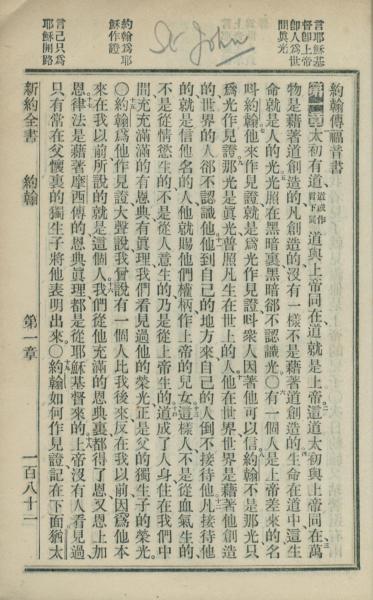 言耶穌基
督即上帝
即人爲世
間眞光
約翰爲耶
穌作證
言己只爲
耶穌開路
St John
約翰傳福音書
第一章太初有道道或作言下同道與上帝同在道就是上帝這道太初與上帝同在萬
物是藉著道創造的凡創造的沒有一樣不是藉著道創造的生命在道中這生
命就是人的光光照在黑暗裏黑暗卻不認識光○有一個人是上帝差來的名
呌約翰他來作見證就是爲光作見證呌衆人因著他可以信約翰不是那光只
爲光作見證那光是眞光普照凡生在世上的人他在世界世界是藉著他創造
的世界的人卻不認識他他到自己的地方來自己的人倒不接待他凡接待他
的就是信他名的人他就賜他們權柄作上帝的兒女這樣人不是從血氣生的
不是從情慾生的不是從人意生的乃是從上帝生的道成了人身住在我們中
間充充滿滿的有恩典有眞理我們看見過他的榮光正是父的獨生子的榮光
○約翰爲他作見證大聲說我曾說有一個人比我後來反在我以前因爲他本
來在我以前所說的就是這個人我們從他充滿的恩典裏都得了恩又恩上加
恩律法是藉著摩西傳的恩典眞理都是從耶穌基督來的上帝沒有人看見過
只有常在父懷裏的獨生子將他表明出來○約翰如何作見證記在下面猶太
新約全書　約翰　第一章　一百八十一